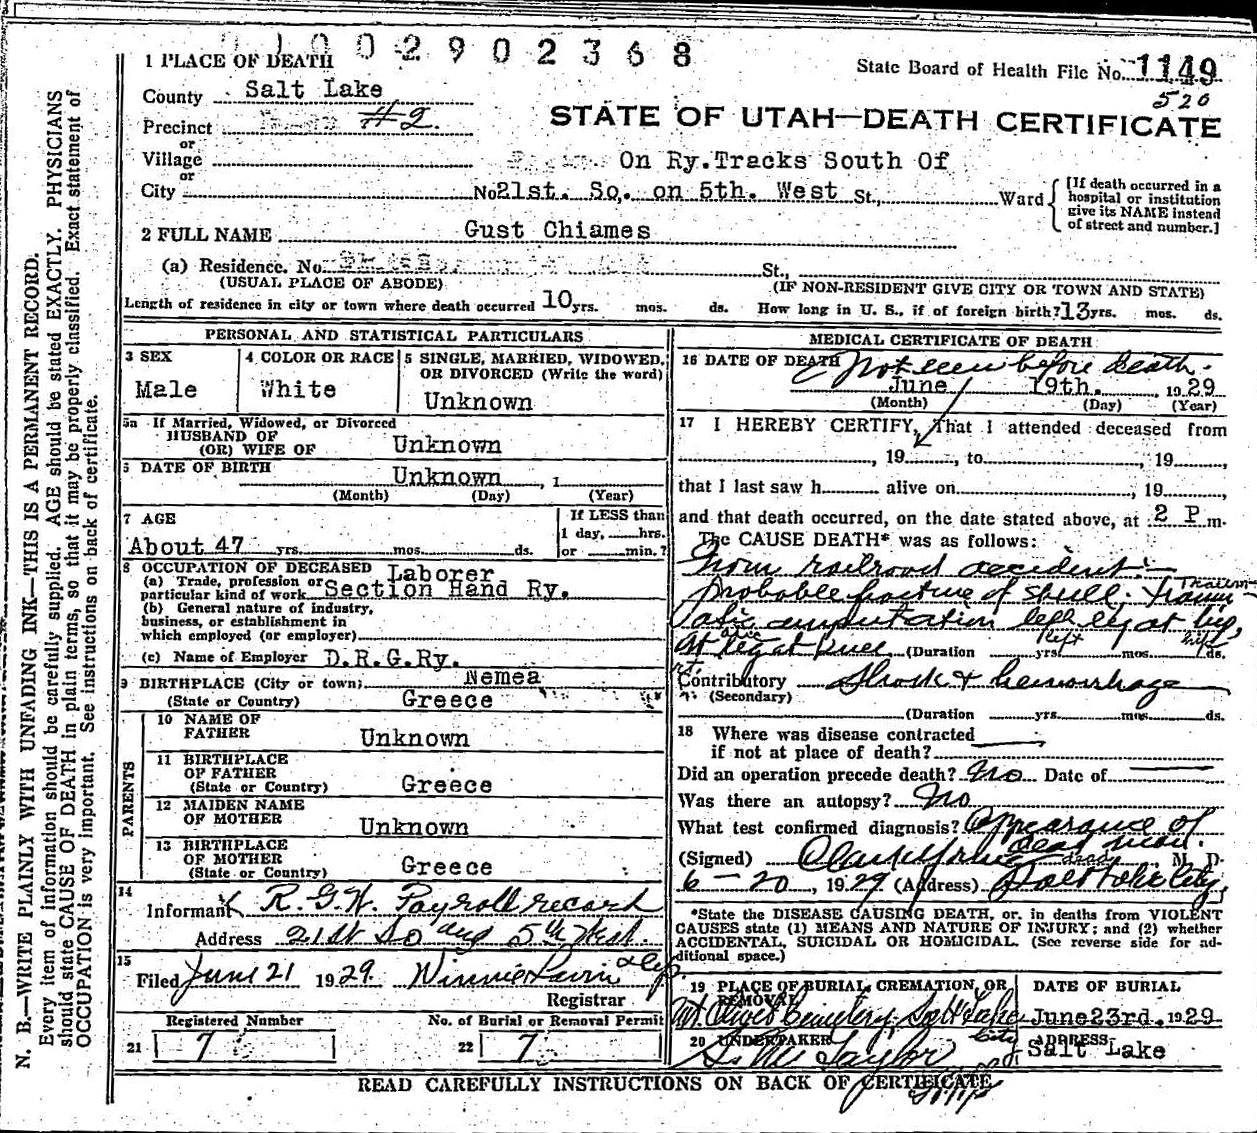 0 0 2 9 0 2 3 6 8
1 PLACE OF DEATH
State Board of Health File No. 1149
520
County Salt Lake
Precinct #2.
STATE OF UTAH—DEATH CERTIFICATE
or
Village On Ry.Tracks South Of
or
City No 21st. So. on 5th. West St., Ward
[If death occurred in a hospital or institution give its NAME instead of street and number.]
2 FULL NAME Gust Chiames
(a) Residence. No. St.,
(USUAL PLACE OF ABODE) (IF NON-RESIDENT GIVE CITY OR TOWN AND STATE)
Length of residence in city or town where death occurred 10 yrs. mos. ds. How long in U. S., if of foreign birth? 13 yrs. mos. ds.
PERSONAL AND STATISTICAL PARTICULARS
3 SEX
Male
4 COLOR OR RACE
White
5 SINGLE, MARRIED, WIDOWED, OR DIVORCED (Write the word)
Unknown
5a If Married, Widowed, or Divorced
HUSBAND OF
(OR) WIFE OF Unknown
6 DATE OF BIRTH Unknown , 1
(Month) (Day) (Year)
7 AGE
About 47 yrs. mos. ds.
If LESS than
1 day, hrs.
or min.?
8 OCCUPATION OF DECEASED Laborer
(a) Trade, profession or
particular kind of work Section Hand Ry.
(b) General nature of industry,
business, or establishment in
which employed (or employer)
(c) Name of Employer D.R.G.Ry.
9 BIRTHPLACE (City or town) Nemea
(State or Country) Greece
PARENTS
10 NAME OF
FATHER Unknown
11 BIRTHPLACE
OF FATHER
(State or Country) Greece
12 MAIDEN NAME
OF MOTHER Unknown
13 BIRTHPLACE
OF MOTHER
(State or Country) Greece
14
Informant R. G. W. Payroll record
Address 21st So and 5th West.
15
Filed June 21 1929. Winnie Dep.
Registrar
Registered Number No. of Burial or Removal Permit
21 7 22 7
MEDICAL CERTIFICATE OF DEATH
16 DATE OF DEATH Not seen before death.
June 19th. 1929
(Month) (Day) (Year)
17 I HEREBY CERTIFY, That I attended deceased from
, 19 , to , 19 ,
that I last saw h alive on , 19 ,
and that death occurred, on the date stated above, at 2 P m.
The CAUSE DEATH* was as follows:
From railroad accident:—
Probable fracture of skull. Traum-
atic amputation left leg at hip,
rt leg at knee (Duration yrs mos ds.
left
Contributory Shock & hemorrhage
(Secondary)
(Duration yrs. mos. ds.
18 Where was disease contracted
if not at place of death?
Did an operation precede death? No Date of
Was there an autopsy? No
What test confirmed diagnosis? Appearance of
dead man.
(Signed) M. D.
6-20 , 1929 (Address) Salt Lake City,
*State the DISEASE CAUSING DEATH, or. in deaths from VIOLENT
CAUSES state (1) MEANS AND NATURE OF INJURY; and (2) whether
ACCIDENTAL, SUICIDAL OR HOMICIDAL. (See reverse side for ad-
ditional space.)
19 PLACE OF BURIAL, CREMATION, OR
REMOVAL
Mt. Olivet Cemetery, Salt Lake
City
DATE OF BURIAL
June 23rd. 1929
20 UNDERTAKER
S. M. Taylor
ADDRESS
Salt Lake
READ CAREFULLY INSTRUCTIONS ON BACK OF CERTIFICATE
N. B.—WRITE PLAINLY WITH UNFADING INK—THIS IS A PERMANENT RECORD.
Every item of information should be carefully supplied. AGE should be stated EXACTLY. PHYSICIANS
should state CAUSE OF DEATH in plain terms, so that it may be properly classified. Exact statement of
OCCUPATION is very important. See instructions on back of certificate.